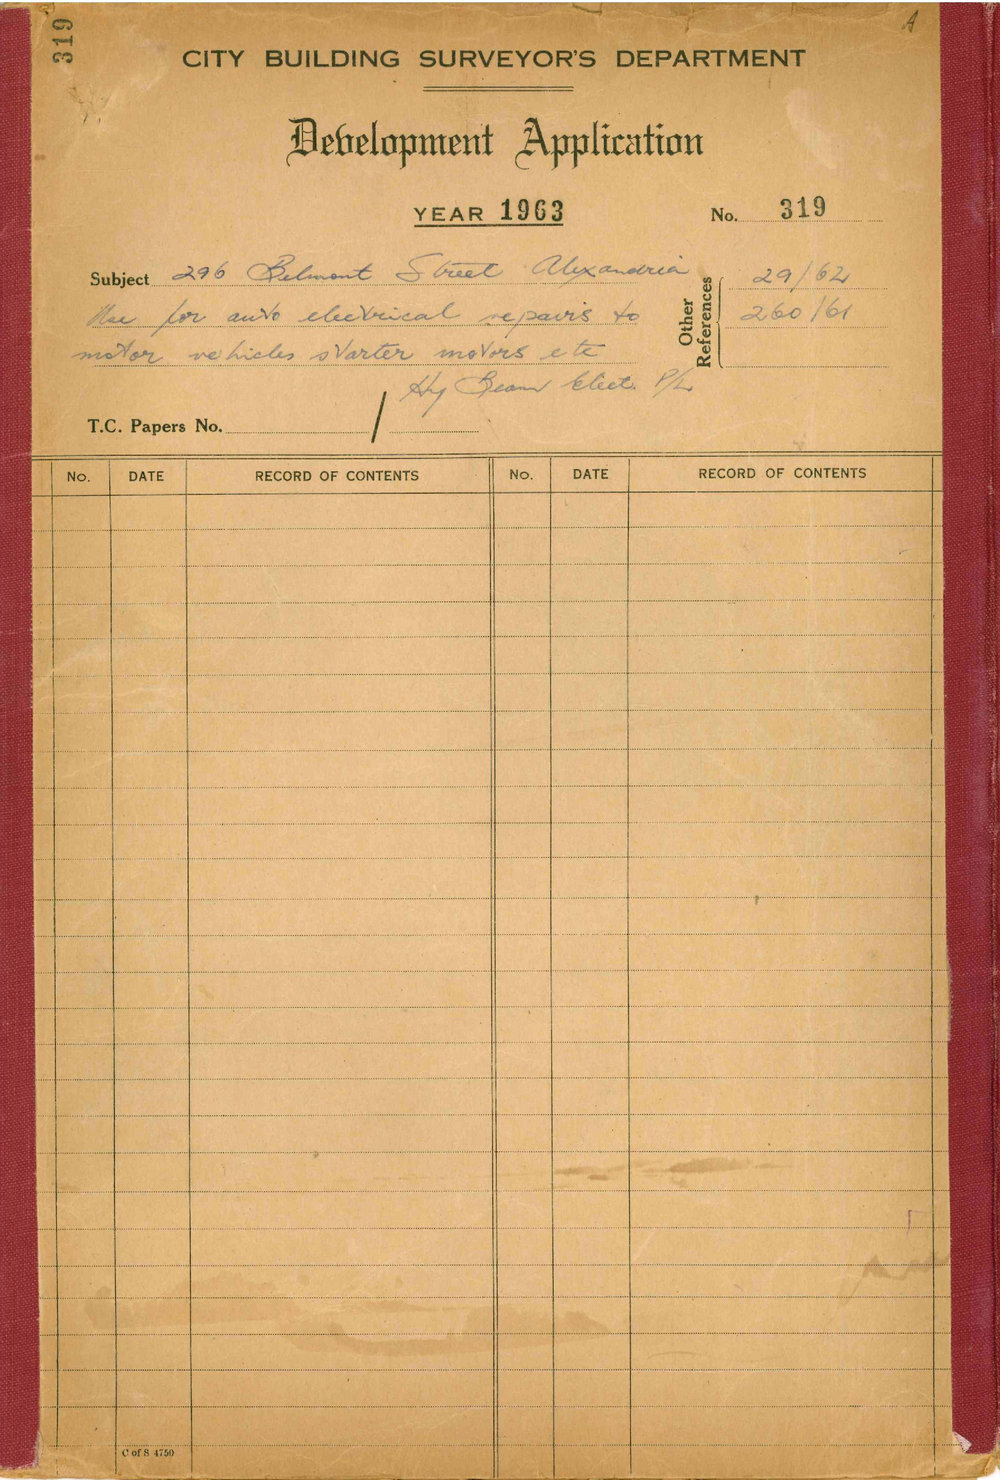 319
A
CITY BUILDING SURVEYOR'S DEPARTMENT
Development Application
YEAR 1963
No. 319
Subject 296 Belmont Street Alexandria
Use for auto electrical repairs to
motor vehicles starter motors etc
Hy Beam Elect. P/L
Other References
29/62
260/61
T.C. Papers No. /
No. DATE RECORD OF CONTENTS No. DATE RECORD OF CONTENTS
C of S 4750